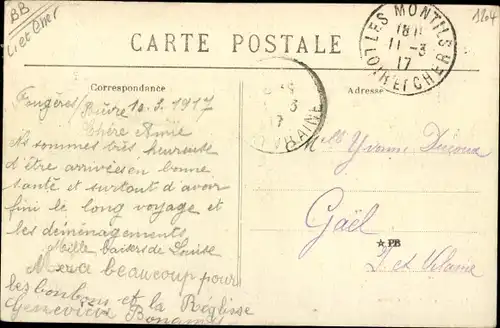 BB
Li et Cher
1204
CARTE POSTALE
LES MONTILS
18 11
11-3
17
LOIR-ET-CHER
Correspondance
Adresse
Fougères/Bièvre 10-3-1917
Chère Amie
Nous sommes très heureuse
d'être arrivées en bonne
santé et surtout d'avoir
fini le long voyage et
et les déménagements
Mille baisers de Louise
beaucoup pour
les bonbons et la Réglisse
Geneviève
Melle Yvonne
Gaël
I. et Vilaine
★ PB